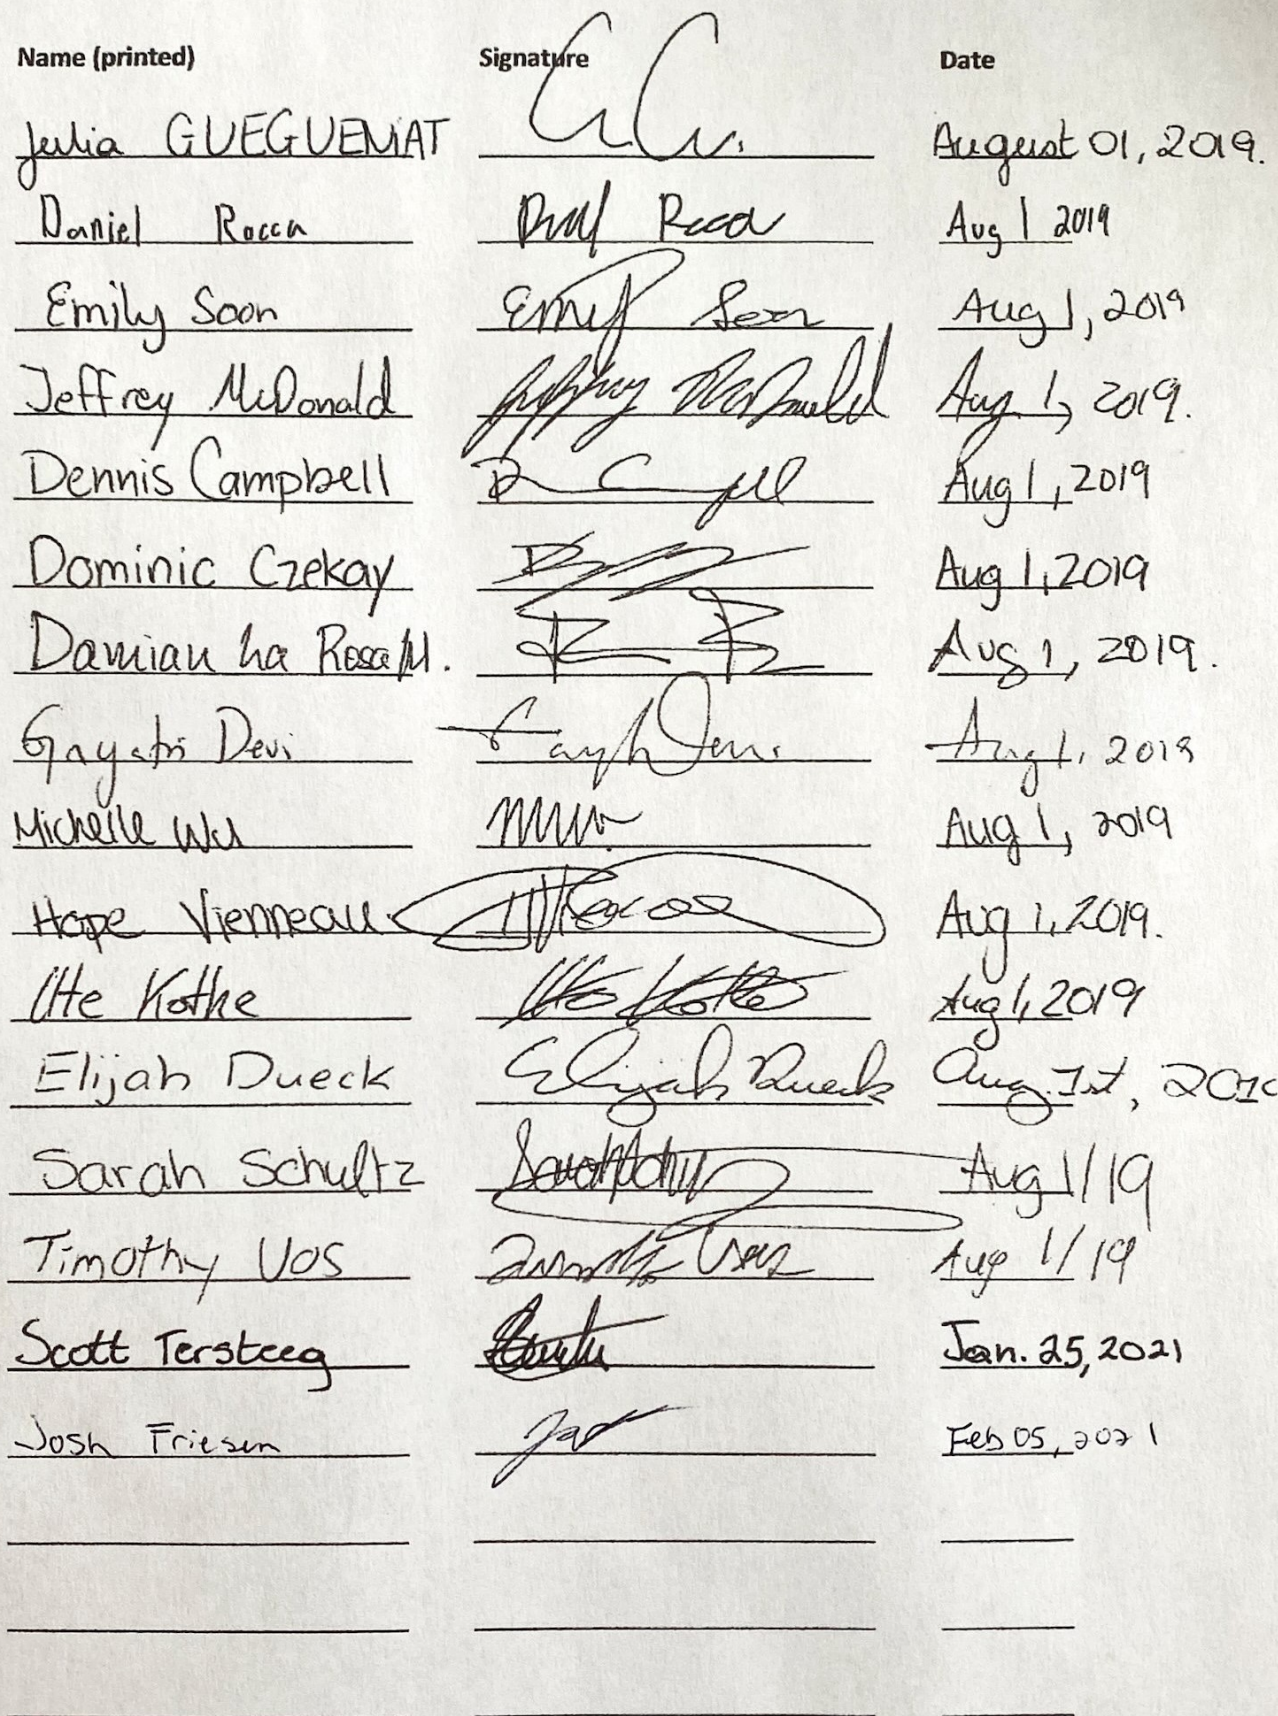 Name (printed) Signature Date
Julia GUEGUENIAT August 01, 2019.
Daniel Rocca Aug 1 2019
Emily Soon Emily Soon Aug 1, 2019
Jeffrey McDonald Jeffrey McDonald Aug. 1, 2019.
Dennis Campbell Aug 1, 2019
Dominic Czekay Aug 1, 2019
Damian La Rosa M. Aug 1, 2019.
Gayatri Devi Aug 1, 2019
Michelle Wu Aug 1, 2019
Hope Vienneau Aug 1, 2019.
Ute Kothe Ute Kothe Aug 1, 2019
Elijah Dueck Elijah Dueck Aug. 1st, 2019
Sarah Schultz Aug 1/19
Timothy Vos Aug 1/19
Scott Tersteeg Jan. 25, 2021
Josh Friesen Feb 05, 2021